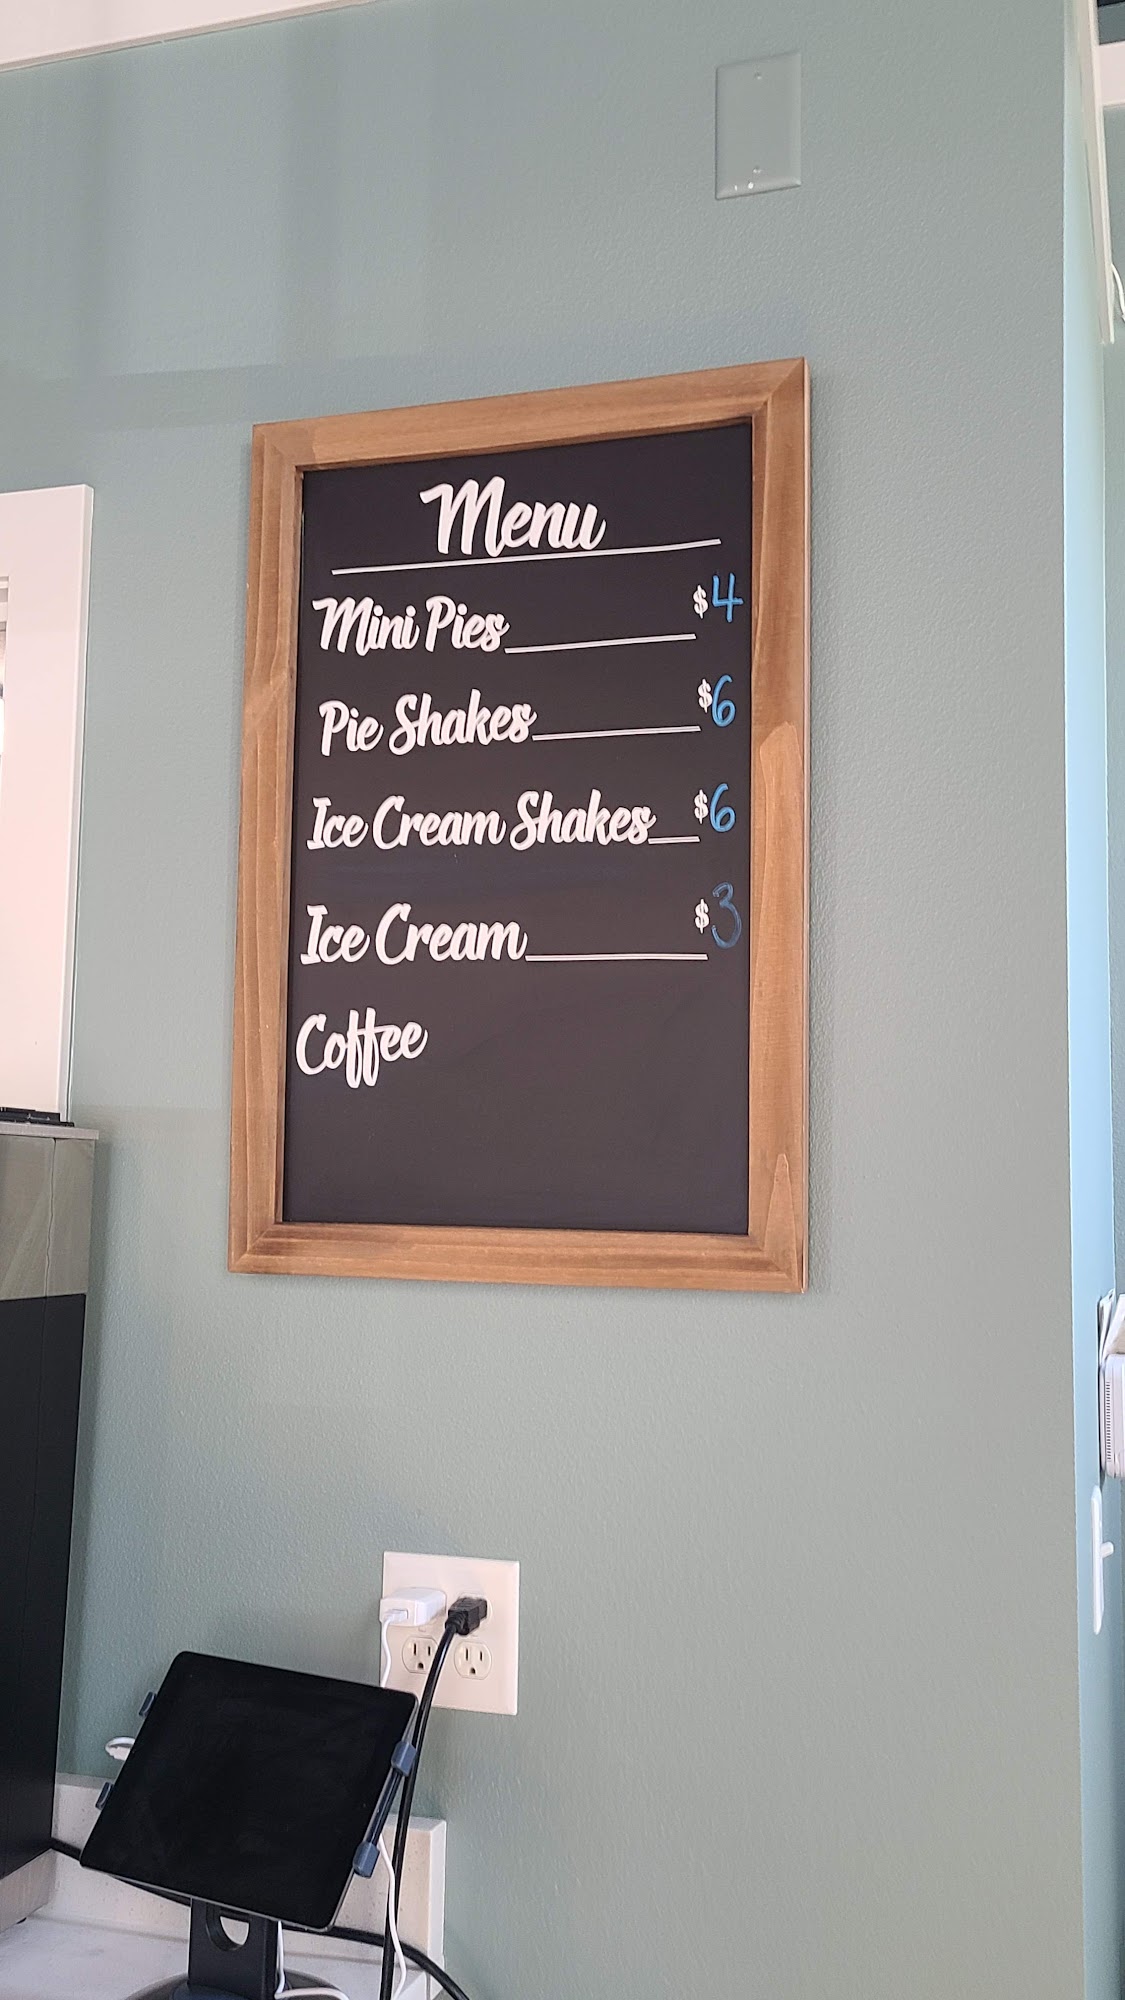 Menu
Mini Pies $4
Pie Shakes $6
Ice Cream Shakes $6
Ice Cream $3
Coffee